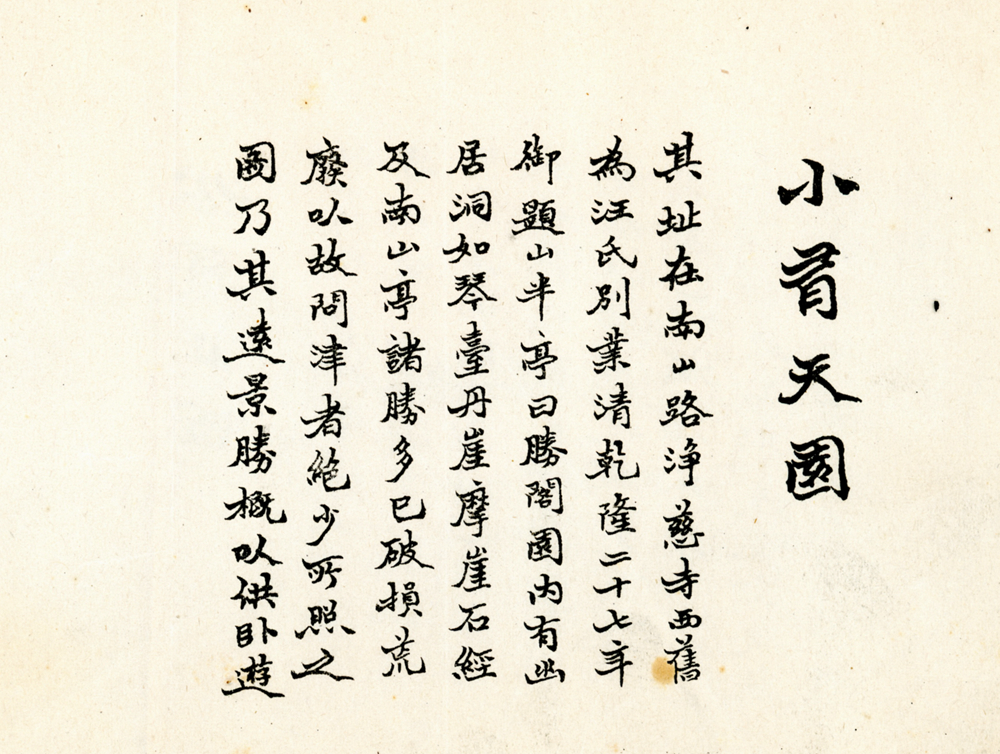 小有天園
其址在南山路淨慈寺西舊
為汪氏別業清乾隆二十七年
御題山半亭曰勝閣園内有幽
居洞如琴臺丹崖摩崖石經
及南山亭諸勝多已破損荒
廢以故問津者絶少所照之
圖乃其遠景勝概以供卧遊